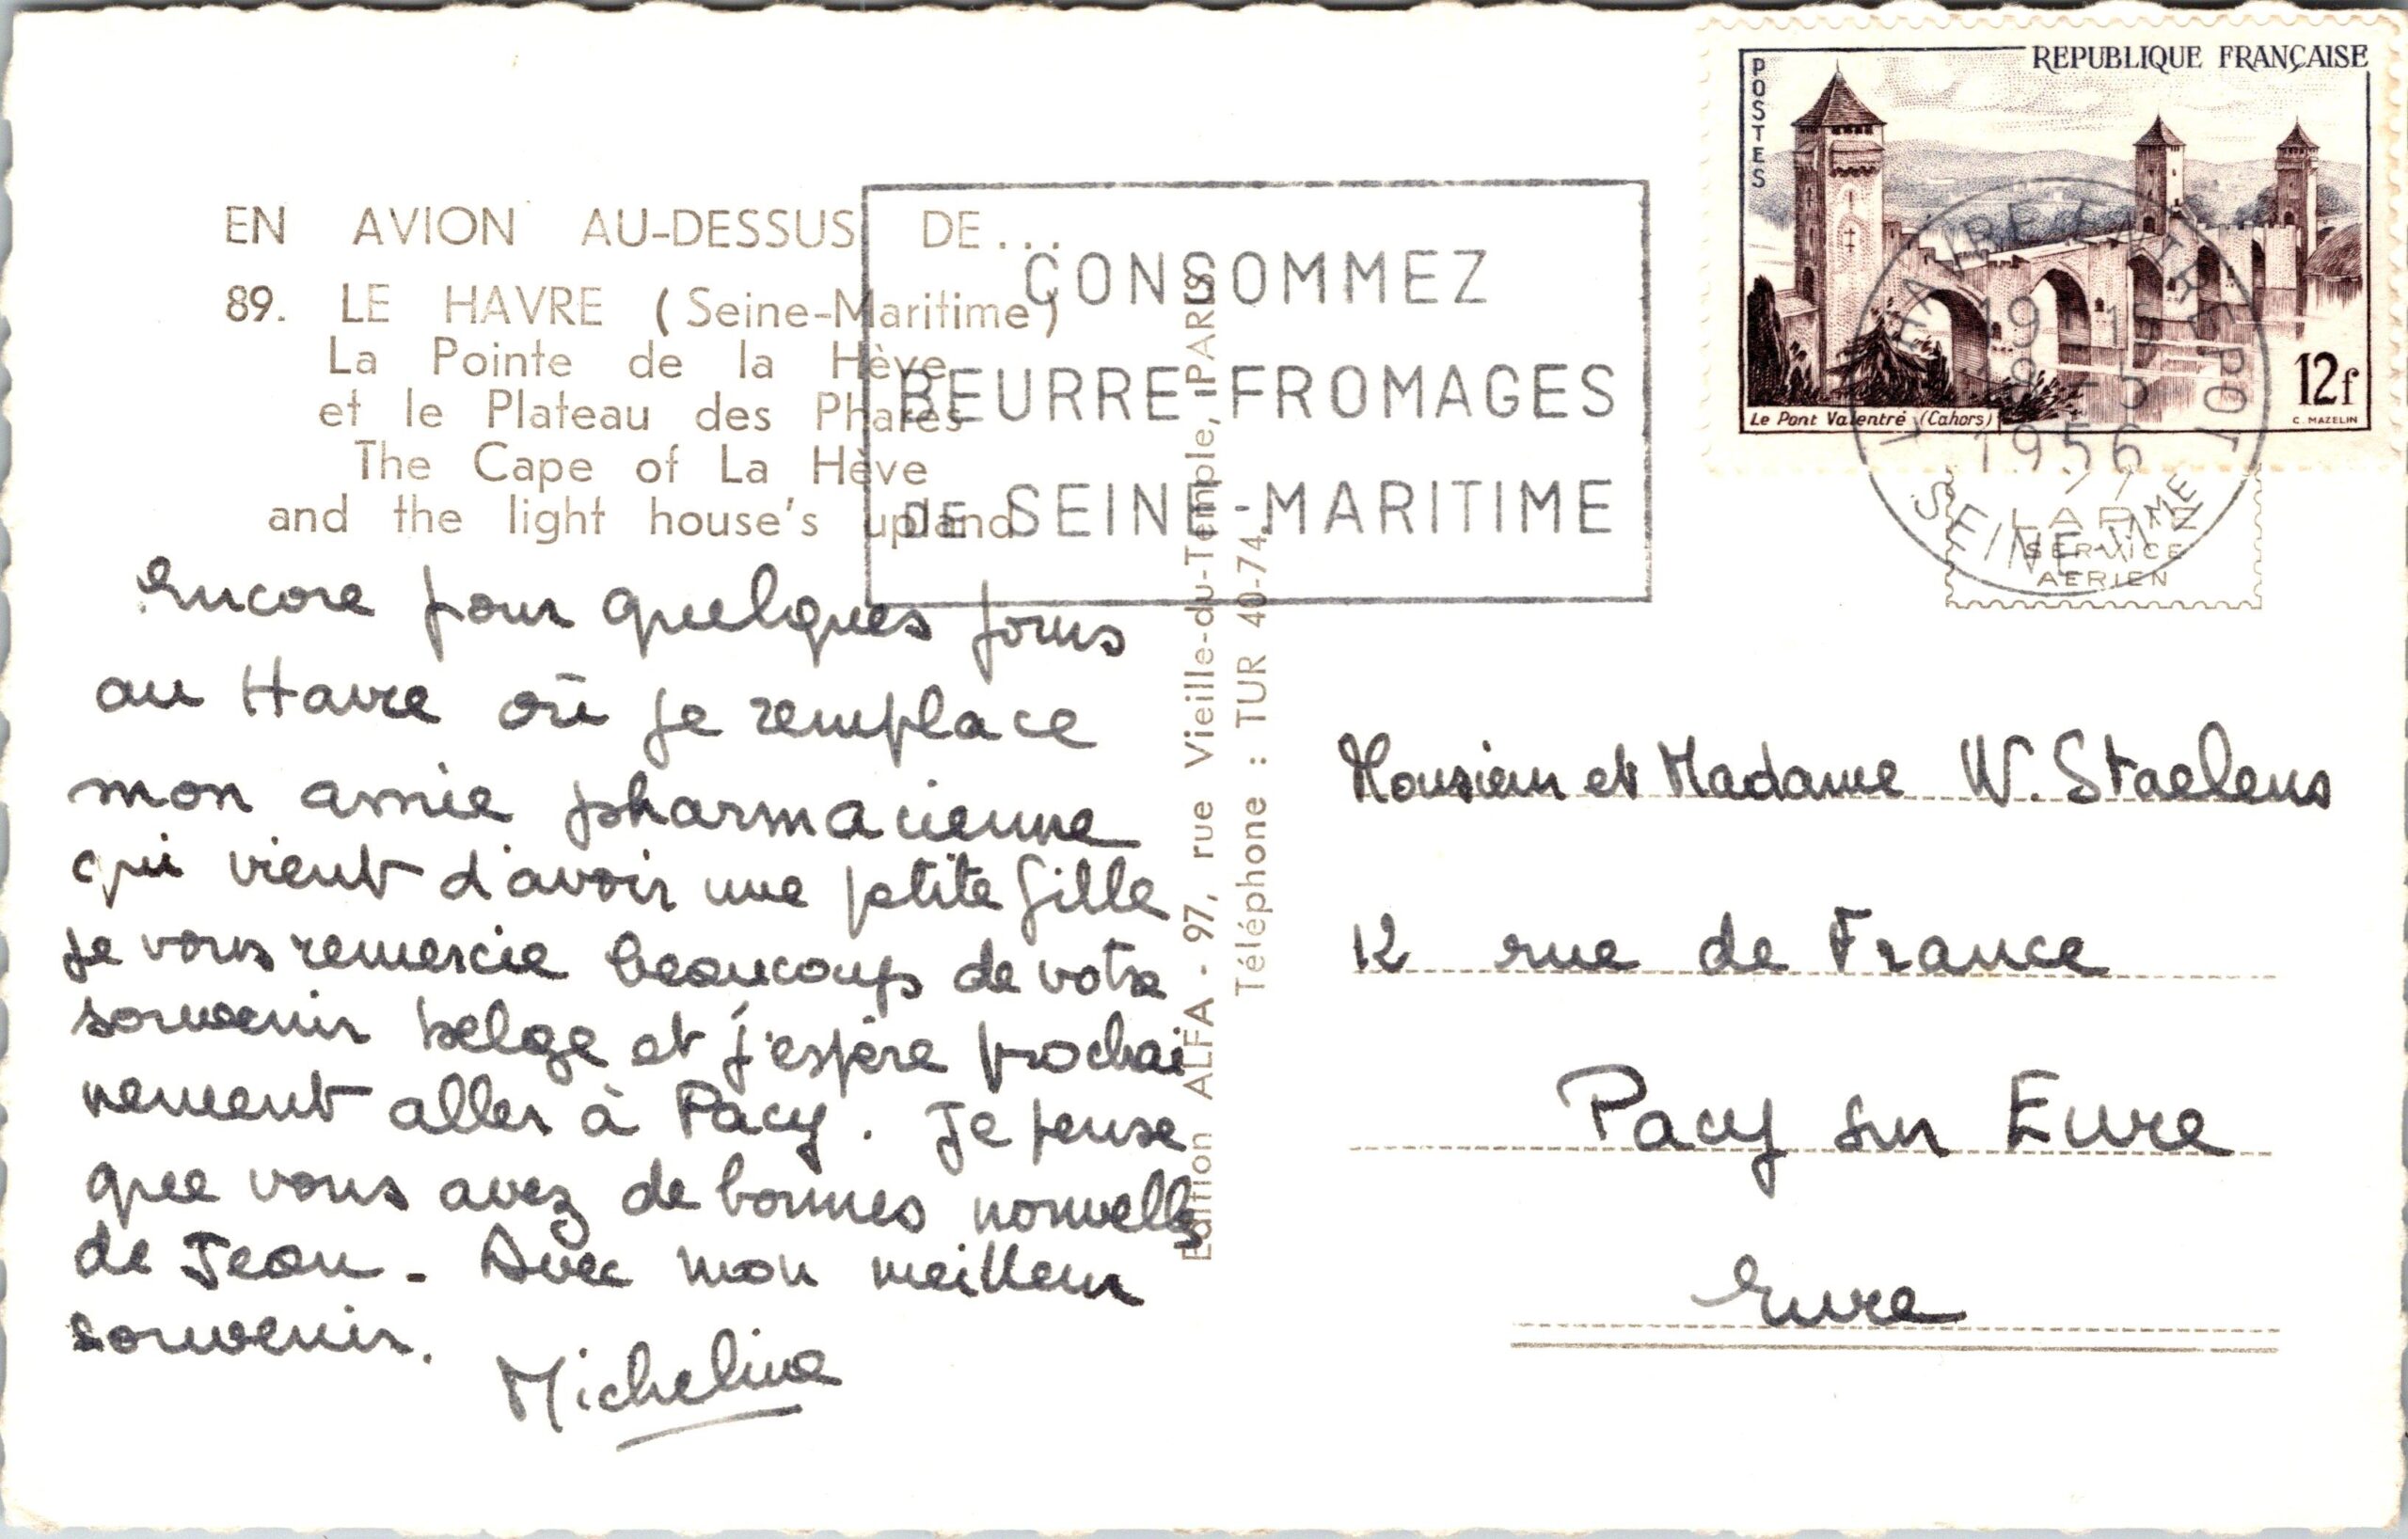 REPUBLIQUE FRANÇAISE
POSTES
Le Pont Valentré (Cahors)
12f
C. MAZELIN
LE HAVRE ENTREPOT
1956
SEINE-MME
LAPIE
SERVICE
AERIEN
CONSOMMEZ
BEURRE-FROMAGES
DE SEINE-MARITIME
EN AVION AU-DESSUS DE...
89. LE HAVRE (Seine-Maritime)
La Pointe de la Hève
et le Plateau des Phares
The Cape of La Hève
and the light house's upland
Encore pour quelques jours
au Havre où je remplace
mon amie pharmacienne
qui vient d'avoir une petite fille
je vous remercie beaucoup de votre
souvenir belge et j'espère prochai
nement aller à Pacy. Je pense
que vous avez de bonnes nouvelles
de Jean - Avec mon meilleur
souvenir.
Micheline
Edition ALFA - 97, rue Vieille-du-Temple, PARIS
Téléphone : TUR 40-74.
Monsieur et Madame W. Staelens
12 rue de France
Pacy sur Eure
Eure